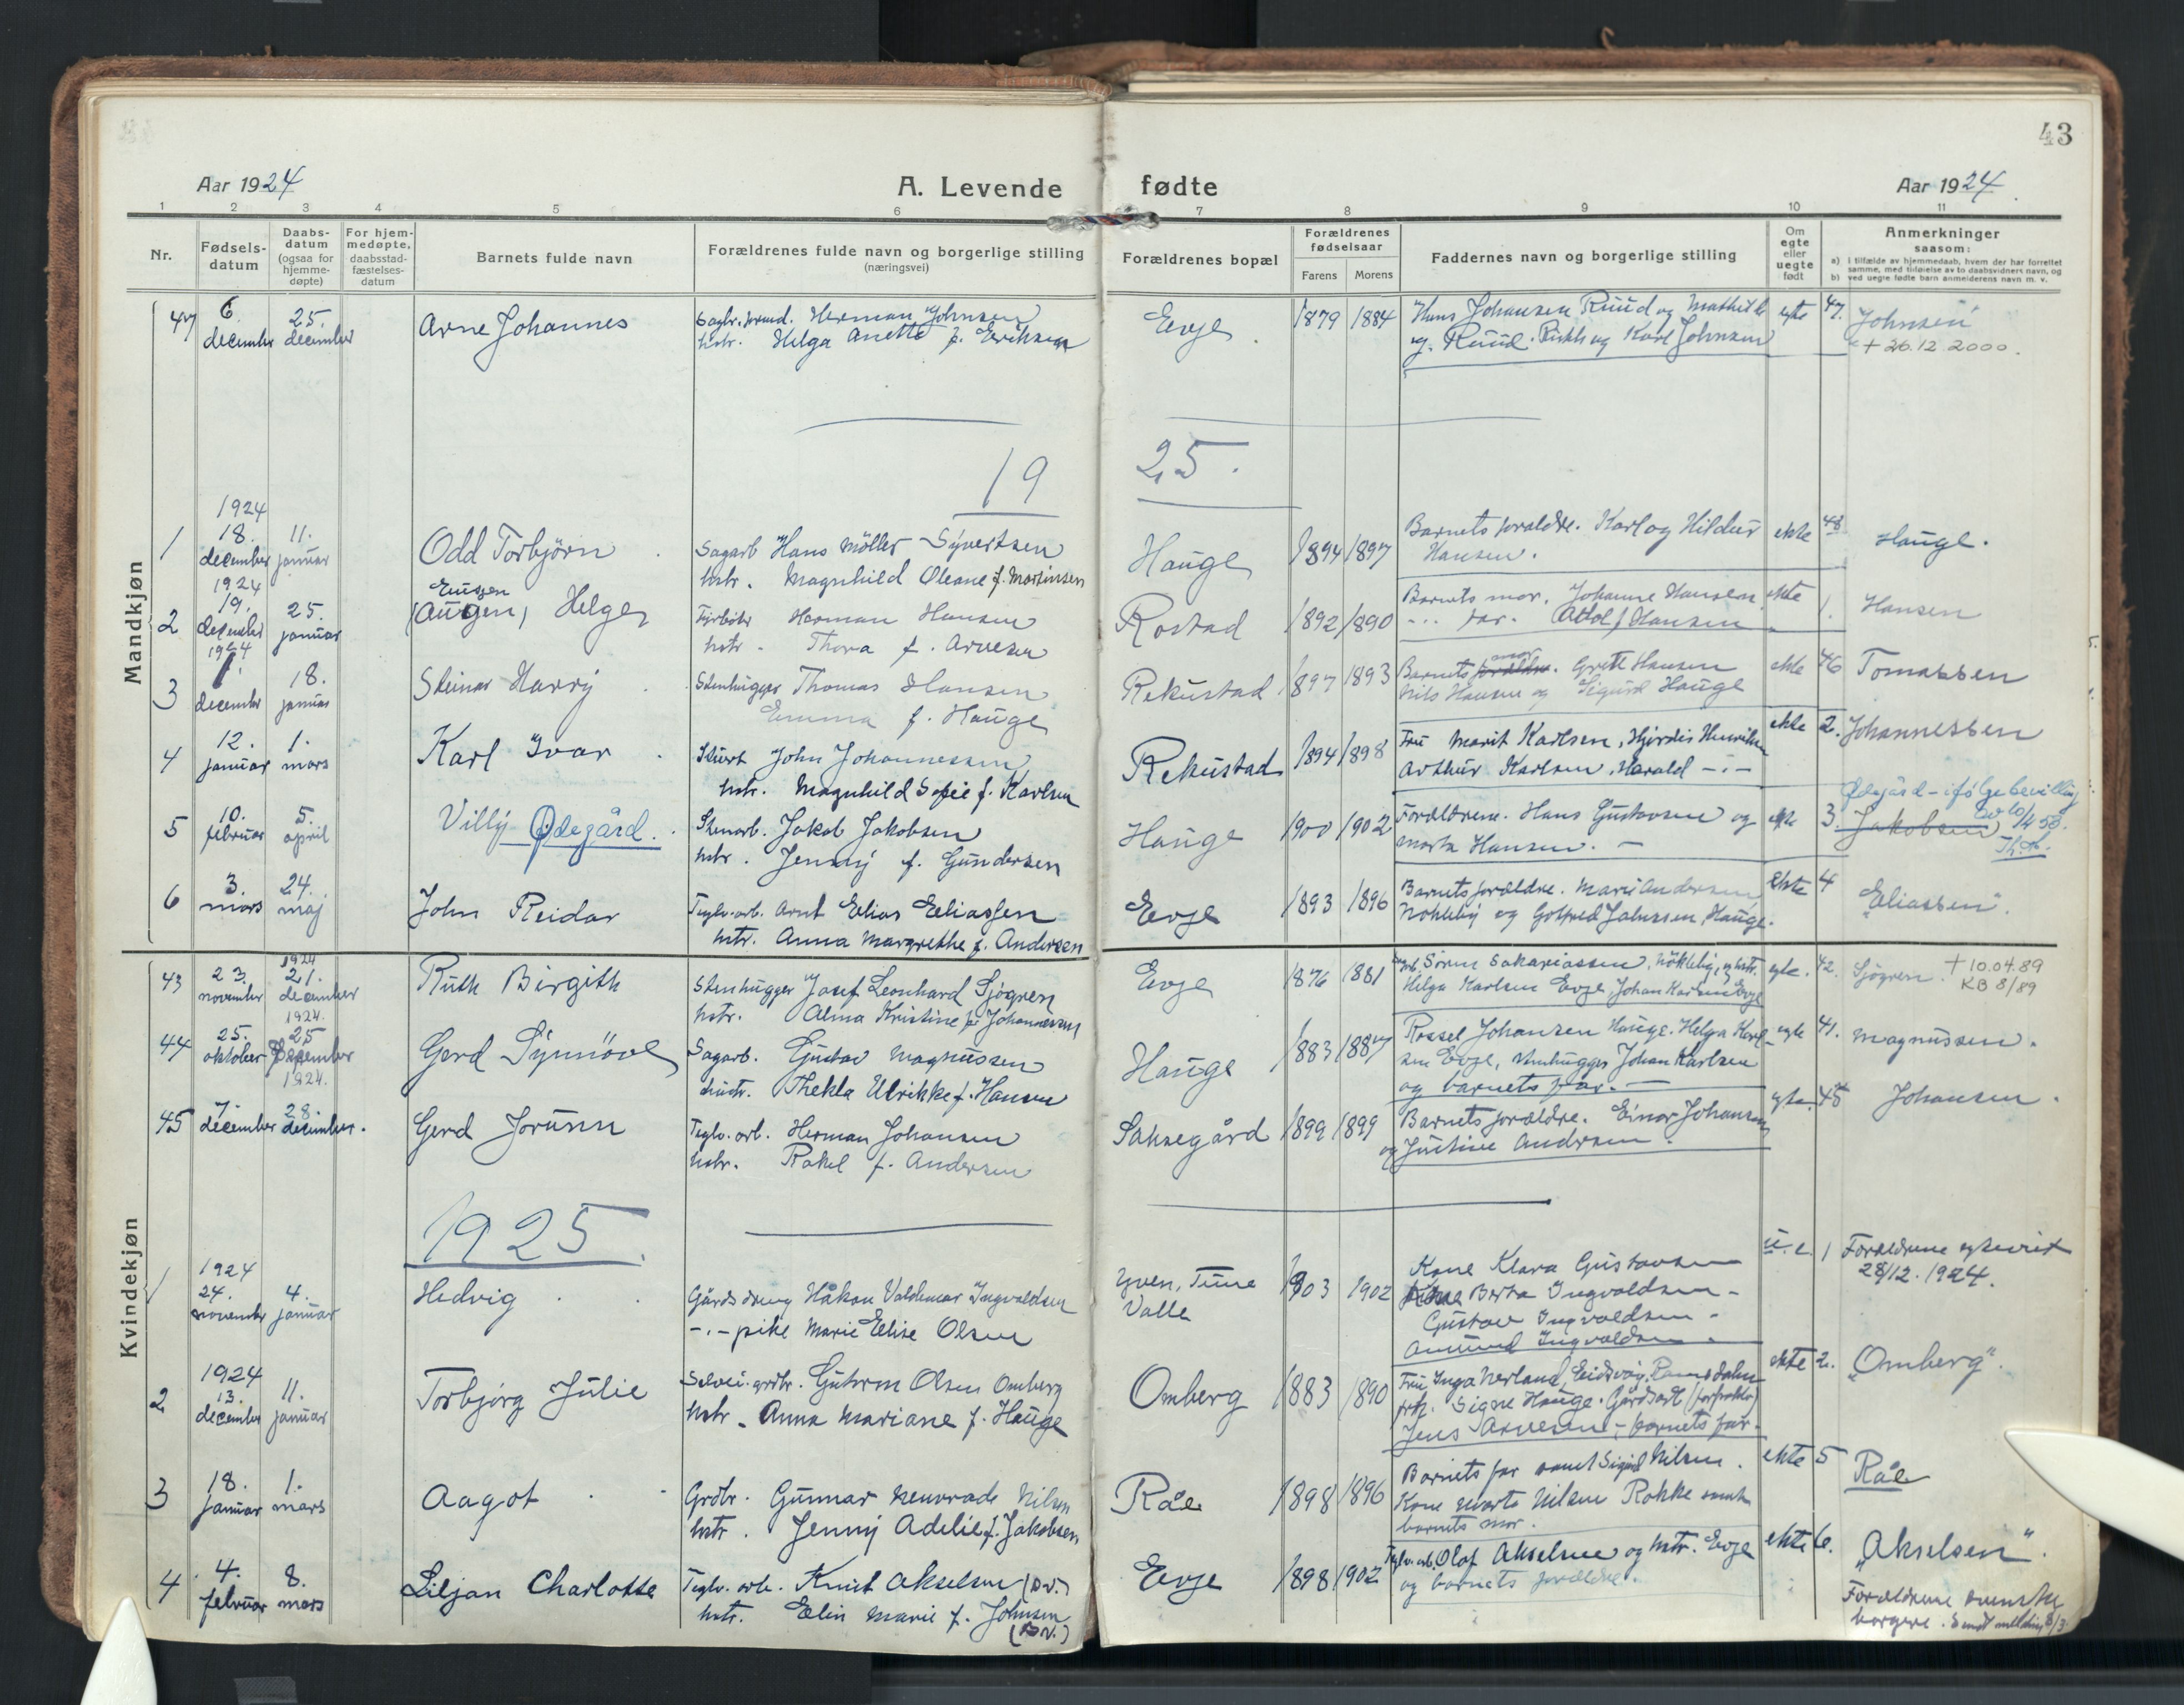 43
Aar 1924
A. Levende fødte
Aar 1924
1 2 3 4 5 6 7 8 9 10 11
Nr.
Fødsels-
datum
Daabs-
datum
(ogsaa for
hjemme-
døpte)
For hjem-
medøpte,
daabsstad-
fæstelses-
datum
Barnets fulde navn
Forældrenes fulde navn og borgerlige stilling
(næringsvei)
Forældrenes bopæl
Forældrenes
fødselsaar
Farens Morens
Faddernes navn og borgerlige stilling
Om
egte
eller
uegte
født
Anmerkninger
saasom:
a) I tilfælde av hjemmedaab, hvem der har forrettet
samme, med tilføielse av to daabsvidners navn, og
b) ved uegte fødte barn anmelderens navn m. v.
Mandkjøn
47 6. december 25. december Arne Johannes
Herman Johnsen
hstr. Helga Anette f. Eriksen
Evje 1879 1884
Hans Johansen Ruud og Mathilde
Ruud. og Karl Johnsen
egte 47. Johnsen
+ 26.12.2000.
19 25.
1 1924 18. december 11. januar Odd Torbjörn
Sagarb Hans Möller Syvertsen
hstr. Magnhild Oleane f. Martinsen
Hauge 1894 1897
Barnets forældre. Karl og Hildur
Hansen.
ekte 48 Hauge.
2 1924 19. december 25. januar Eugen
(Augen) Helge
Fyrböter Herman Hansen
hstr. Thora f. Arvesen
Rostad 1892 1890
Barnets mor. Johanne Hansen
-·- far. Adolf Hansen
ekte 1. Hansen
3 1924 1. december 18. januar Steinar Harry
Stenhugger Thomas Hansen
Emma f. Hauge
Rekustad 1897 1893
Barnets forældre mor. Grete Hansen
Nils Hansen og Sigurd Hauge
ekte 46 Tomassen
4 12. januar 1. mars Karl Ivar
Stuert John Johannessen
hstr. Magnhild Sofie f. Karlsen
Rekustad 1894 1898
Fru Marit Karlsen, Hjördis Henriksen
Arthur Karlsen, Harald -·-
ekte 2. Johannessen
5 10. februar 5. april Villy Ødegård.
Stenarb. Jakob Jakobsen
hstr. Jenny f. Gundersen
Hauge 1900 1902
Forældrene. Hans Gustavsen og
Marta Hansen. -
ekte 3. Jakobsen
Ødegård - ifölge bevilling
av 10/4 50.
6 3. mars 24. maj John Reidar
Teglv.arb. Arnt Elias Eliassen
hstr. Anna Margrethe f. Andersen
Evje 1893 1896
Barnets forældre. Marie Andersen
Nökleby og Gotfred Johnsen, Hauge.
Ekte 4 "Eliassen".
Kvindekjøn
43 23. november 1924 21. december Ruth Birgith
Stenhugger Josef Leonhard Sjögren
hstr. Alma Kristine f. Johannessen
Evje 1876 1881
Sören Sakariassen, Nökleby, og hstr.
Helga Karlsen Evje, Johan Karlsen Evje
egte. 42. Sjögren. + 10.04.89
KB 8/89
44 25. oktober 1924. 25 december Gerd Synnöve
Sagarb. Gustav Magnussen
hustr. Thekla Ulrikke f. Hansen
Hauge 1883 1887
Rossel Johansen Hauge. Helga Karl-
sen Evje, stenhugger Johan Karlsen
og barnets far. -
egte 41. Magnussen.
45 7. december 1924. 28. december. Gerd Jorunn
Teglv. arb. Herman Johansen
hstr. Rakel f. Andersen
Saksegård 1899 1899
Barnets forældre. Einar Johansen
og Justine Andersen.
egte. 45 Johansen.
1925.
1 1924 24. november 4. januar Hedvig
Gårdsdreng Håkon Valdemar Ingvaldsen
-·- pike Marie Elise Olsen
Yven, Tune
Valle
1903 1902
Kone Klara Gustavsen
Kone Berta Ingvaldsen -
Gustav Ingvaldsen -
Amund Ingvaldsen.
u. e. 1 Forældrene egteviet
28/12. 1924.
2 1924 13. december 11. januar Torbjörg Julie
Selvei. grdbr. Guttorm Olsen Omberg
hstr. Anna Mariane f. Hauge
Omberg 1883 1890
Fru Inga Nerland, Eidsvåg, Romsdalen
frk. Signe Hauge. Gårdsarb.
Jens Arvesen - barnets far.
ekte 2. "Omberg".
3 18. januar 1. mars Aagot
Grdbr. Gunnar Nilsen
hstr. Jenny Adelie f. Jakobsen
Råe 1898 1896
Barnets far samt Sigurd Nilsen.
Kone Marta Nilsen Rokke samt
barnets mor.
ekte 5 Råe
4 4. februar 8. mars Liljan Charlotte
Teglv. arb. Knut Akselsen
hstr. Elin Marie f. Johnsen
Evje 1898 1902
Teglv. arb. Olaf Akselsen og hstr. Evje
og barnets forældre.
ekte 6. "Akselsen".
Forældrene svenske
borgere. Sendt melding 8/3